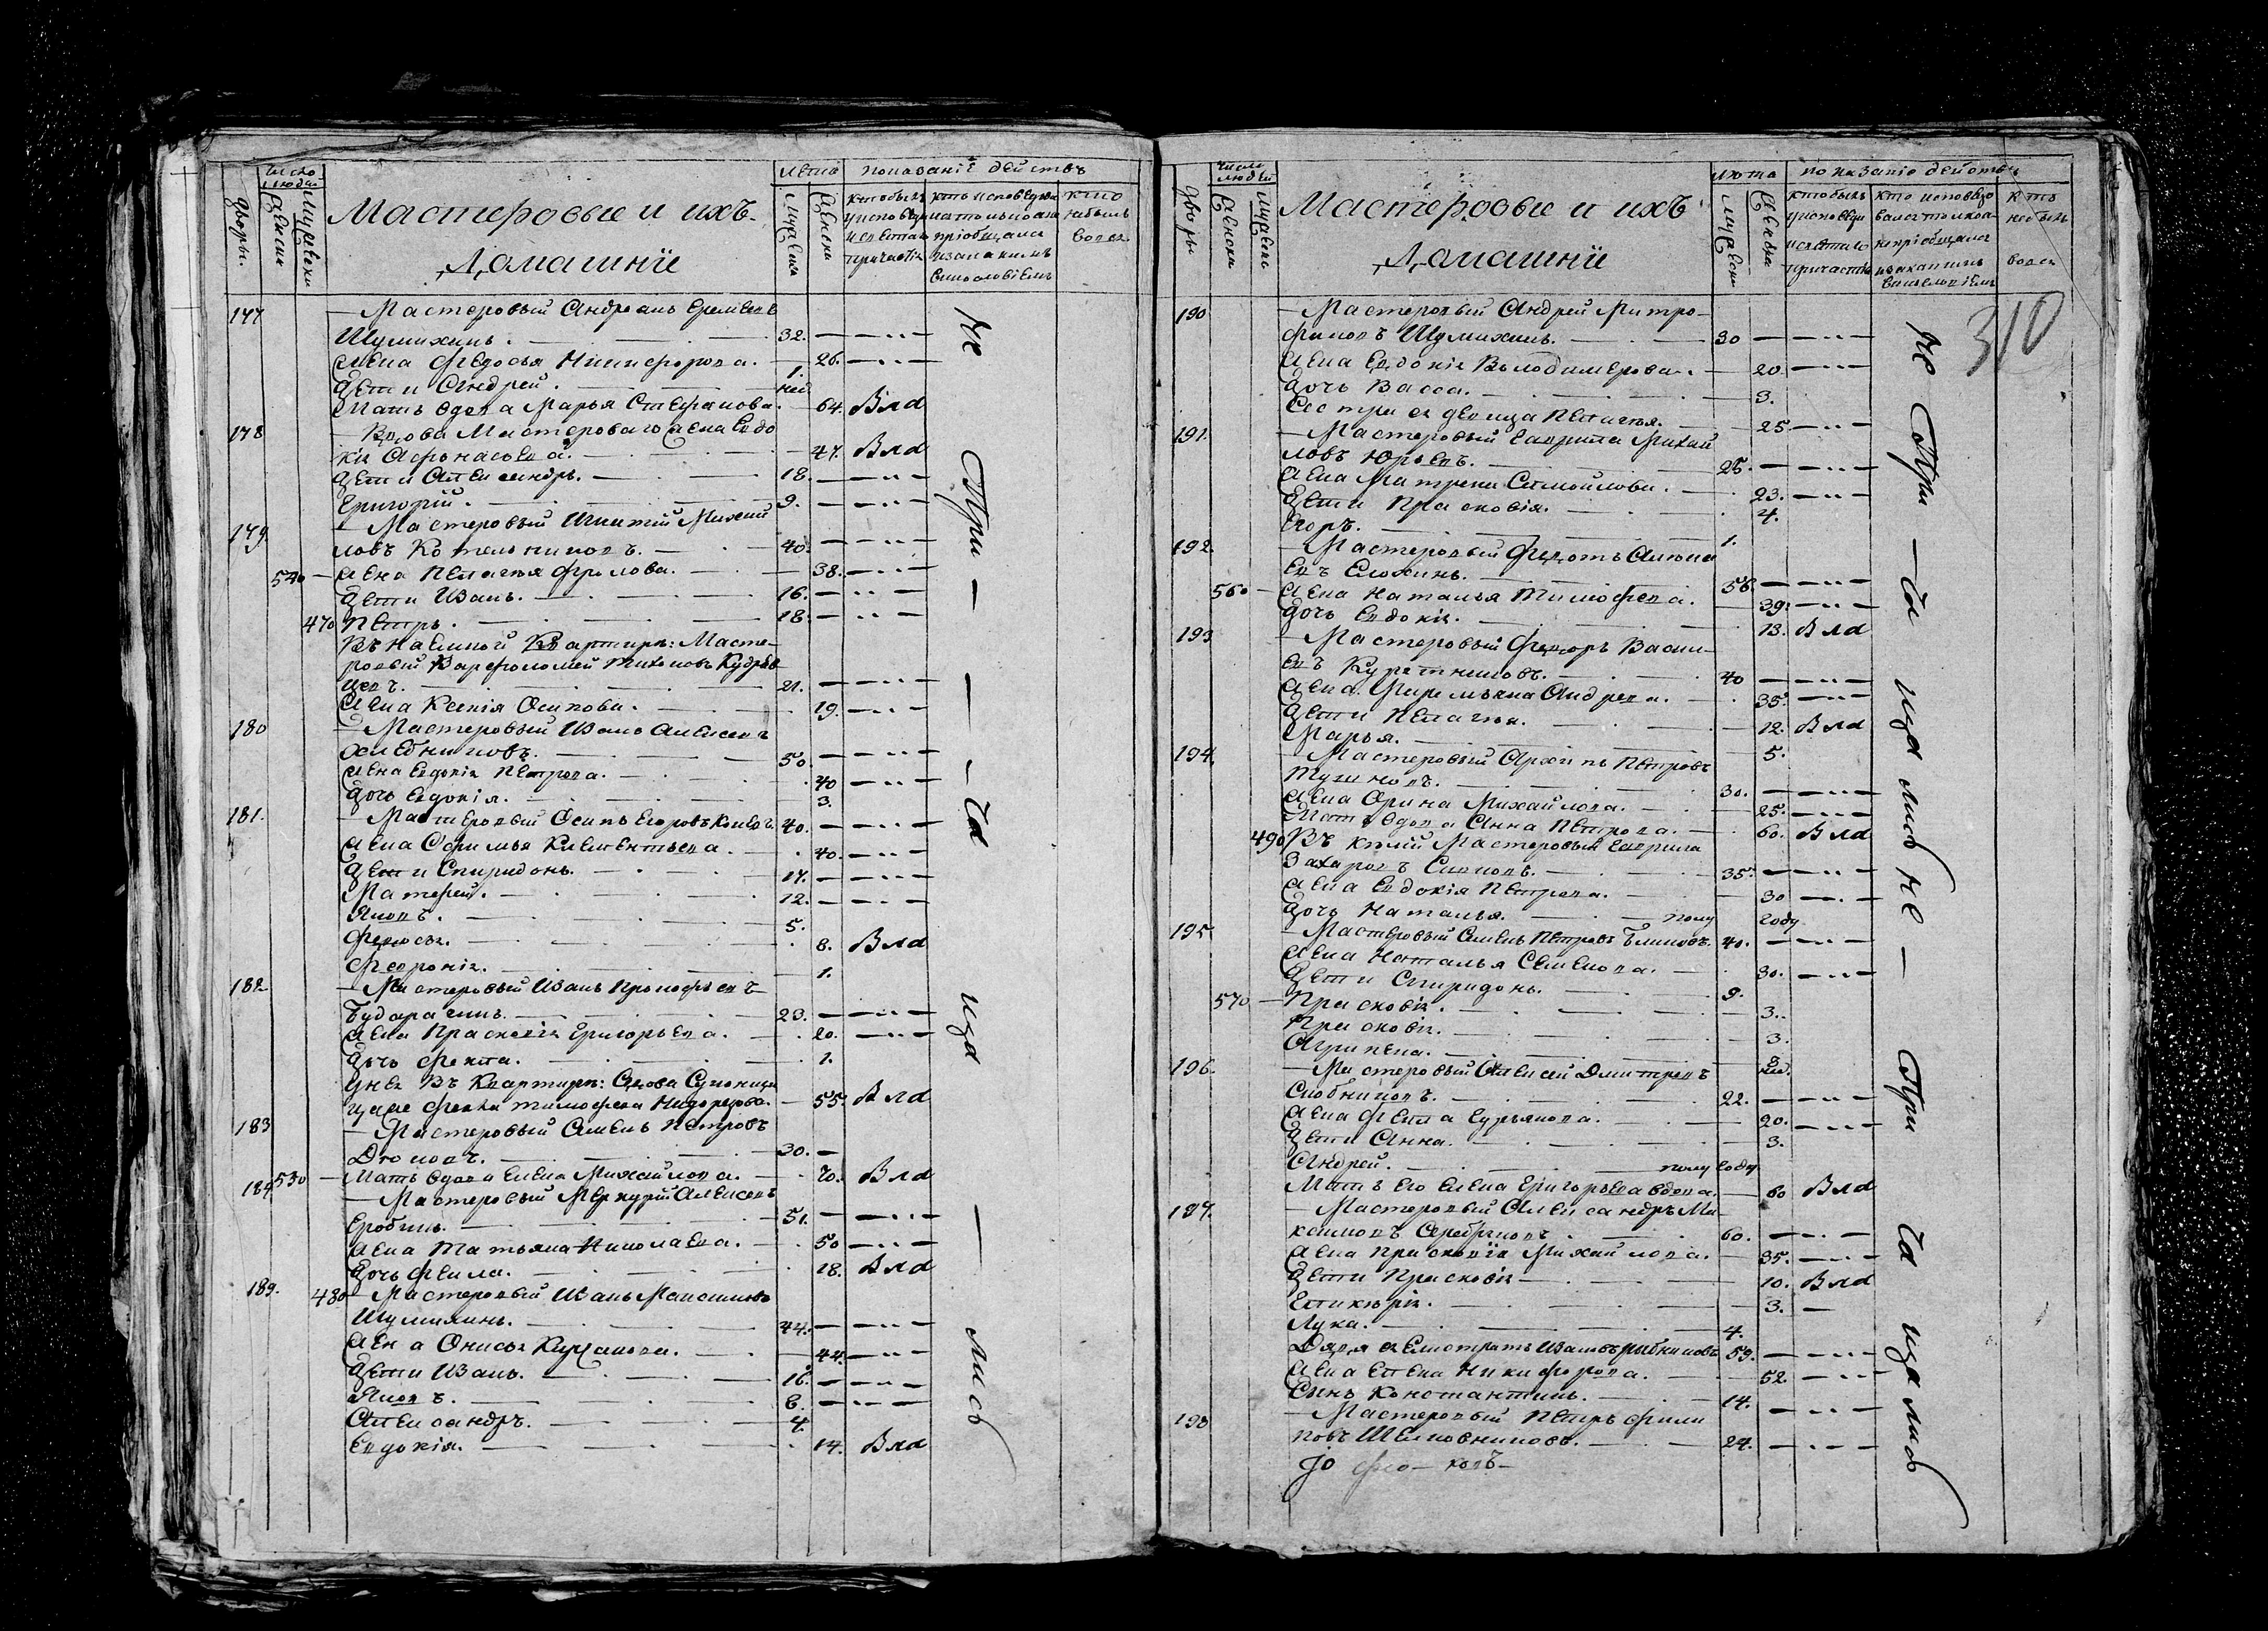 число людей
лета
показаніе действъ
дворы.
женска
мужеска
Мастеровые и ихъ
Домашніе
мужеска
женска
кто былъ у исповеди и святаго причастія
кто исповедывался токмо а не пріобщался и за какимъ винословіемъ
кто не былъ вовсе
177 — Мастеровый Андреанъ Еремеевъ
Шумихинъ. 32.
жена Федосья Никифорова. 26.
дети Андрей. 1. нед
Мать вдова Марья Стефанова. 64. Была
178 — Вдова Мастероваго жена Евдо
кія Афонасьева. 47. Была
дети Александръ. 18.
Григорій. 9.
179 — Мастеровый Игнатій Михай
ловъ Котельниковъ. 40.
540 — жена Пелагея Фролова. 38.
дети Иванъ. 16.
470 Петръ. 18.
Въ наемной Квартире: Масте-
ровый Варфоломей Тихоновъ Кудрев
цевъ. 21.
жена Ксенія Осипова. 19.
180 — Мастеровый Иванъ Алексеевъ
Хлебниковъ. 50.
жена Евдокія Петрова. 40
дочь Евдокія. 3.
181. — Мастеровый Осипъ Егоровъ 40.
жена Софилья Клементьева. 40.
дети Спиридонъ. 17.
Матфей. 12.
Яковъ. 5.
Федосья. 8. Была
Феврония. 1.
182 — Мастеровый Иванъ Прокофьевъ
Бударагинъ. 23.
жена Прасковія Григорьева. 20.
дочь Фекла. 1.
У нея въ Квартире: вдова
Фекла Тимофеева 55. Была
183 — Мастеровый Емельянъ Петровъ
Дюковъ. 30.
530 — Мать вдова Елена Михайлова. 70. Была
184 — Мастеровый Меркурій Алексеевъ
Еробинъ. 51.
жена Татьяна Николаева. 50
дочь Фекла. 18. Была
189. 480 — Мастеровый Иванъ Максимовъ
Шумихинъ. 44.
жена Онисья Кирсанова. 44.
дети Иванъ. 16.
Яковъ. 8.
Александръ. 4.
Евдокія. 14. Была
не При — ча — ща — лись
число людей
лета
показаніе действъ
дворы
женска
мужеска
Мастеровые и ихъ
Домашніе
мужеска
женска
кто былъ у исповеди и святаго причастія
кто исповедывался токмо а не пріобщался и за какимъ винословіемъ
кто не былъ вовсе
310
190 — Мастеровый Андрей Митро-
фановъ Шумихинъ. 30
жена Евдокія Володимерова. 20.
дочь Васса. 3.
Сестра ея девица Пелагея. 25.
191. — Мастеровый Гаврила Михай
ловъ Юрьевъ. 25.
жена Матрена Самойлова. 23.
дети Прасковія. 4.
Егоръ. 1.
192. — Мастеровый Федотъ
евъ Еложинъ. 56.
560 — жена Наталья Тимофеева. 39.
дочь Евдокія. 13. Была
193 — Мастеровый Федоръ Васил-
евъ Курятниковъ. 40
жена Андреева. 35.
дети Пелагея. 12. Была
Марья. 5.
194. — Мастеровый Архипъ Петровъ
30.
жена Орина Михайлова. 25.
Мать вдова Анна Петрова. 60. Была
490 Въ келіи Мастеровый Гаврила
Захаровъ 35.
жена Евдокія Петрова. 30
дочь Наталья. полу году
195 — Мастеровый Петровъ 40.
жена Наталья Семенова. 30.
дети Спиридонъ. 9.
570 — Прасковія. 3.
Прасковія. 3.
Агрипена. 2 нед.
196. — Мастеровый Алексей Дмитревъ
Скобниковъ. 22.
жена Фекла Гурьянова. 20.
дети Анна. 3.
Андрей. полу году
Мать его Елена Григорьева вдова. 60 Была
197. — Мастеровый Александръ Ма
ксимовъ Серебряковъ. 60.
жена Прасковія Михайлова. 35.
дети Прасковія 10. Была
Гликерія. 3.
Лука. 4.
Дядя Елистратъ Ивановъ Рыбниковъ 59.
жена Елена Никифорова. 52.
Сынъ Константинъ. 14.
198 — Мастеровый Петръ Фили
повъ Шелковниковъ. 24.
не При — ча ща лись не — При ча ща лись